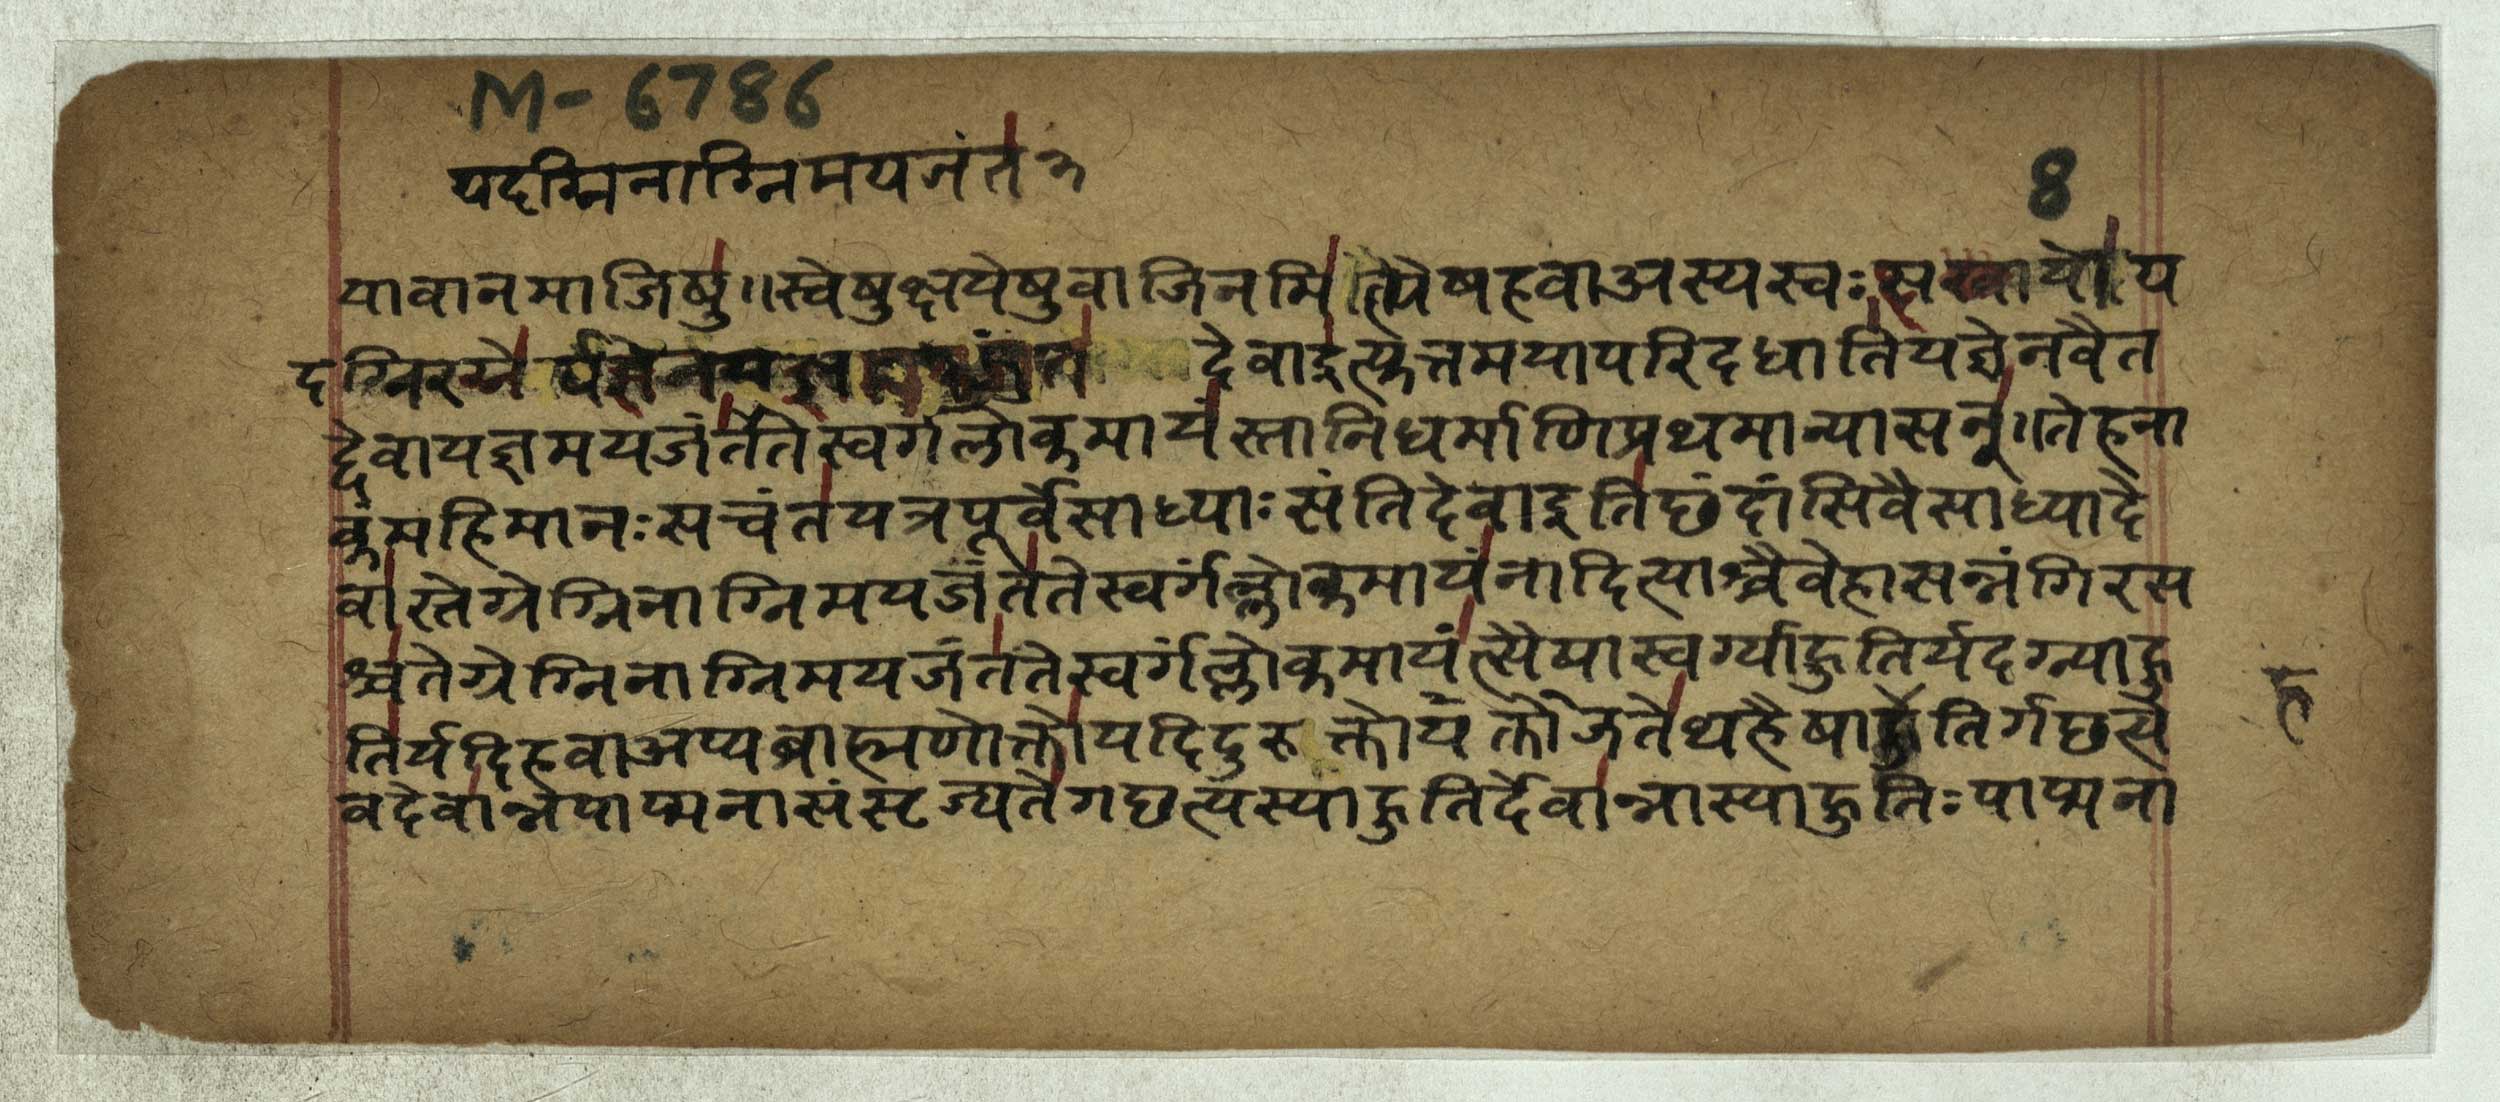 M-6786
यदग्निनाग्निमयजंत
8
यावानमाजिषु॥स्वेषुक्षयेषुवाजिनमित्येषहवाअस्यस्वः य
दग्निरग्ने देवाइत्युत्तमयापरिदधातियज्ञेनवैत
द्देवायज्ञमयजंततेस्वर्गलोकमायंस्तानिधर्माणिप्रथमान्यासन्॥तेहना
कंमहिमानःसचंतयत्रपूर्वेसाध्याःसंतिदेवाइतिछंदांसिवैसाध्यादे
वास्तेग्रेग्निनाग्निमयजंततेस्वर्गंल्लोकमायंनादित्याश्चैवेहासन्नंगिरस
श्चतेग्रेग्निनाग्निमयजंततेस्वर्गंल्लोकमायंत्सैषास्वर्ग्याहुतिर्यदग्न्याहु
तिर्यदिहवाअप्यब्राह्मणोक्तोयदिदुरुक्तोयजतेथहैषाहुतिर्गछत्ये
ह
वदेवान्नपाप्मनासंसृज्यतेगछत्यस्याहुतिर्देवान्नास्याहुतिःपाप्मना